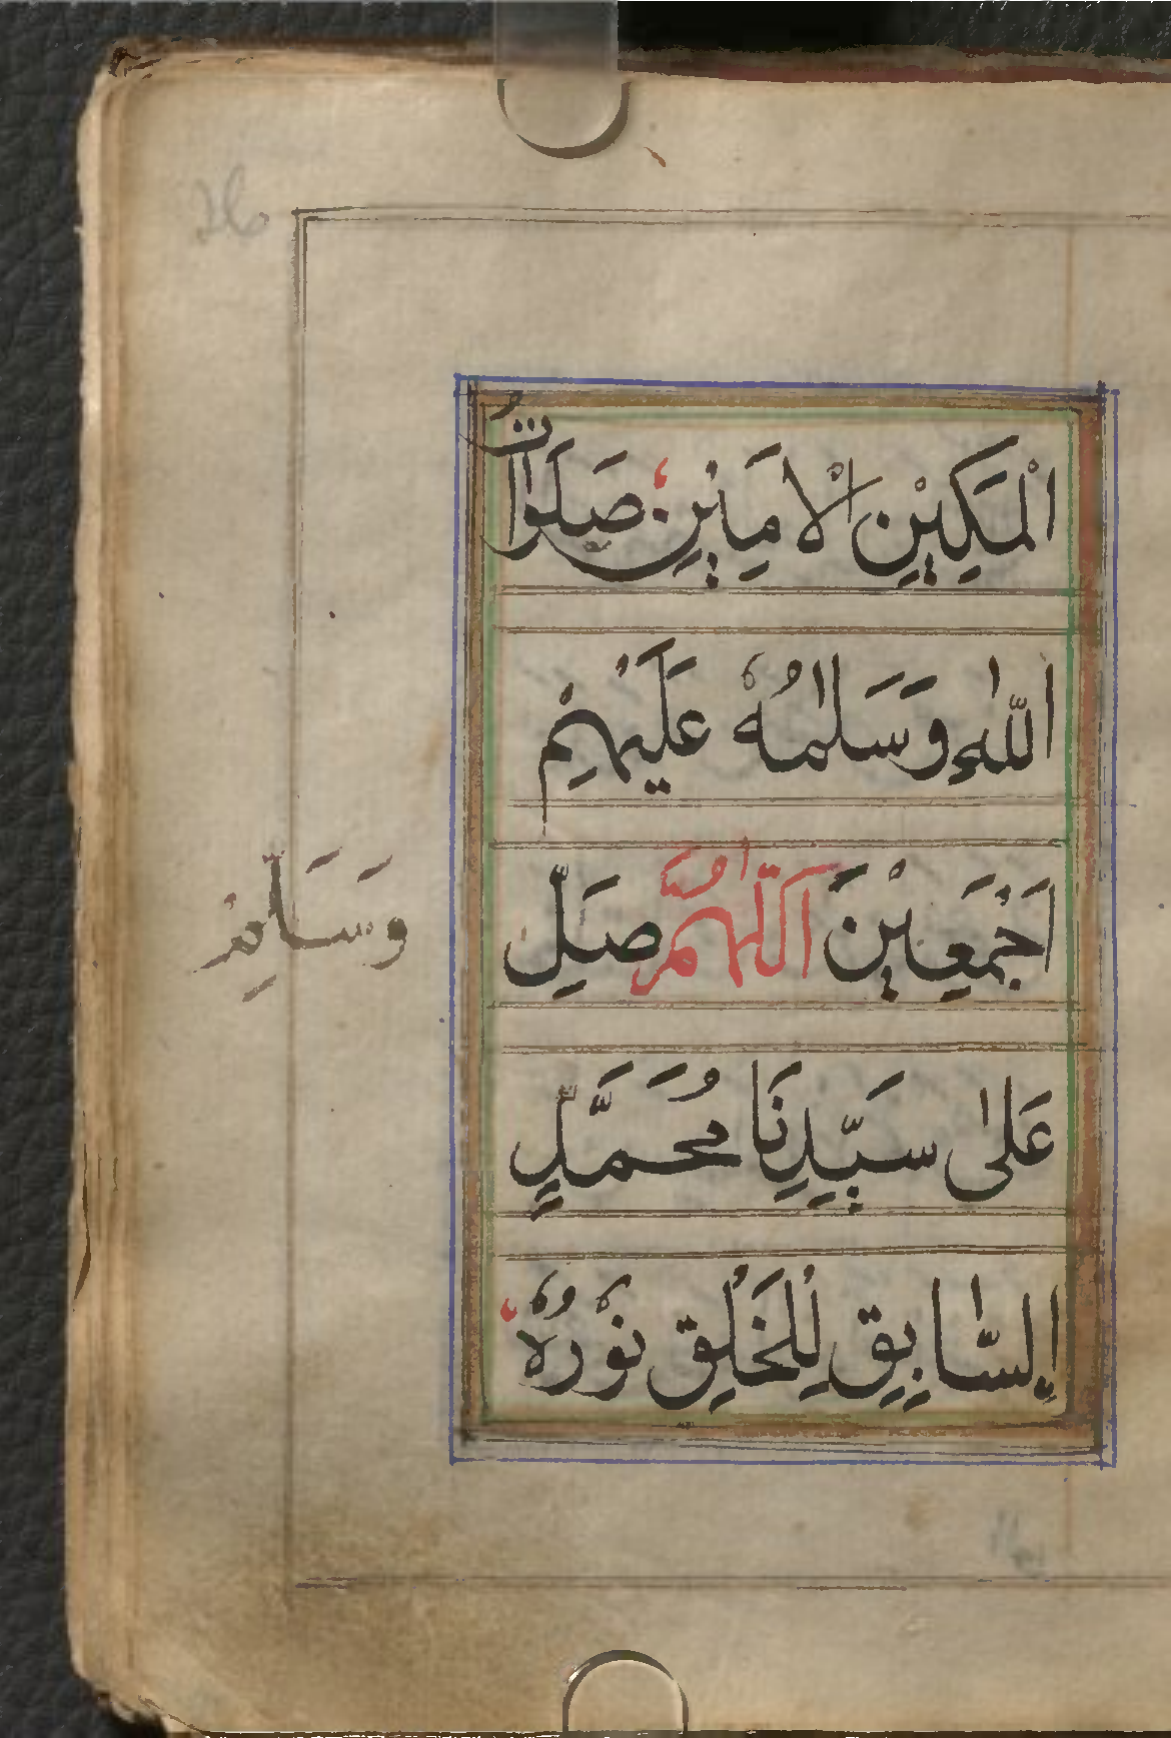 26
الْمَكِيْنِ الْاَمِيْنِ صَلَوٰاتُ
اللّٰهِ وَسَلٰمُهُ عَلَيْهِمْ
اَجْمَعِيْنَ اَللّٰهُمَّ صَلِّ
وَسَلِّمْ
عَلٰى سَيِّدِنَا مُحَمَّدٍ
اِلسَّابِقِ لِلْخَلْقِ نُوْرُهُ